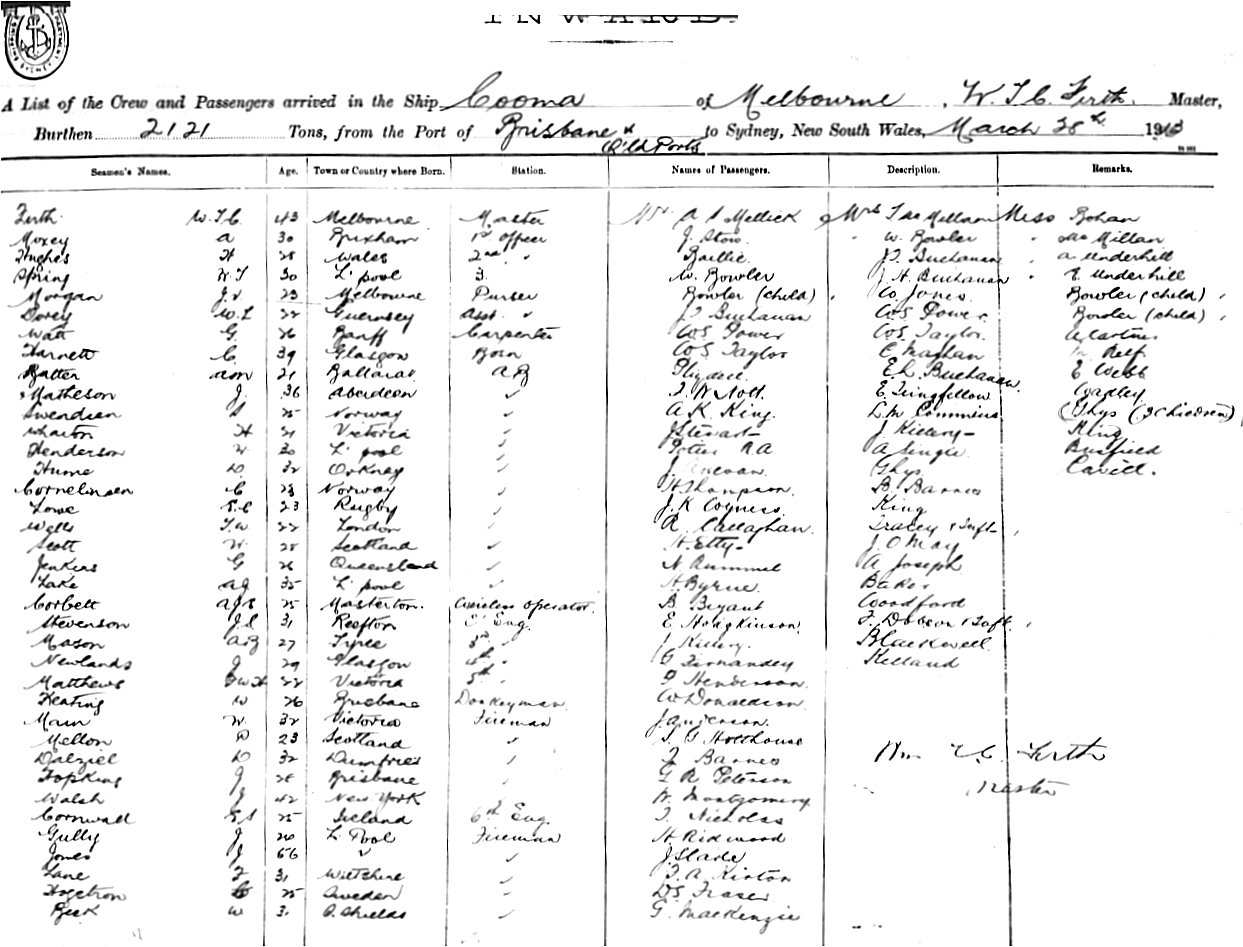 INWARD.
A List of the Crew and Passengers arrived in the Ship Cooma of Melbourne, W. T. C. Firth Master,
Burthen 2121 Tons, from the Port of Brisbane & to Sydney, New South Wales, March 28th 191
Q'ld Ports
Seamen's Names. Age. Town or Country where Born. Station. Names of Passengers. Description. Remarks.
Firth W.T.C. 43 Melbourne Master A S Mellick Mrs Miss Rohan
Moxey A 30 Brixham 1st Officer J. Stow. " W. Bowler " McMillan
Hughes H 28 Wales 2nd " Baillie J. Buchanan " A Underhill
Spring W.T 30 L'pool 3 W. Bowler J. H. Buchanan " E. Underhill
Morgan J. 23 Melbourne Purser Bowler (child) W. Jones Bowler (child)
Dorey W.L 22 Guernsey Asst. " J Buchanan W S Power Bowler (child)
Watt G. 26 Banff Carpenter W S Power W S. Taylor
Harnett C. 39 Glasgow Bosn W S. Taylor
Batter 21 Ballarat A B E. Buchanan E Webb
Matheson J. 36 Aberdeen " Nott. E. Wadley
Swendsen 25 Norway " A K. King L. M. Commins Ghys (2 Children)
Wharton H 21 Victoria " J Stewart J. King
Henderson 30 L'pool " Potter R A A Busfield
Hume D 32 Orkney " Ghys Cavill.
Cornelinsen C 23 Norway " H Thompson. B. Barnes
Lowe E.C 23 Rugby " J. K. King
Wells T.W 22 London " R. Callaghan. Tracey & Inft
Scott W. 28 Scotland " H. Etty J. O May
Jenkins G 26 Queensland " N Rummel A Joseph
Lake A J 35 L'pool " H Byrne. Baker
Corbett 25 Masterton. Wireless Operator. B Bryant Woodford
Stevenson J.S 31 Reefton 2nd Eng. E Hodgkinson. F. Dobson & Inft
Mason A.B 27 Tyree 3rd " J Blackwell
Newlands J 29 Glasgow 4th " G Fernandez Kelland
Matthews 22 Victoria 5th " Henderson.
Keating W 26 Brisbane Donkeyman. W Donaldson.
Main W. 32 Victoria Fireman J. Anderson.
Mellon P 23 Scotland " T. G Holthouse
Dalziel D 32 Dumfries J Barnes Wm T. C. Firth
Hopkins J 26 Brisbane " G R Peterson
Walsh J 42 New York " W. Montgomery Master
Cornwall 25 Ireland 6th Eng. T. Nicholas
Gully J 20 L'Pool Fireman H Ridwood
Jones J 56 " " J Slade
Lane F 31 Wiltshire " F. A. Kirton
Hogstrom 25 Sweden " D S. Fraser
Beck W 31 S. Shields " G. MacKenzie